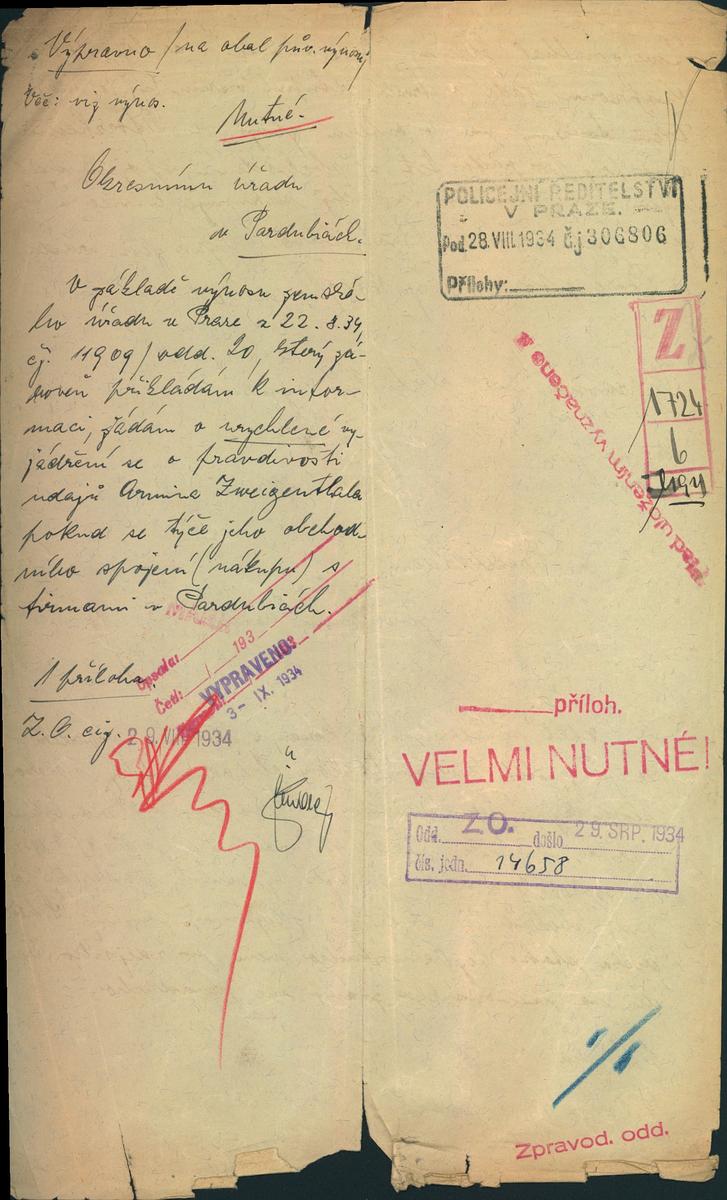 Výpravno / na obal pův. výnosu
Věc: viz výnos.
Nutné.
Okresnímu úřadu
v Pardubicích.
V základě výnosu zemské-
ho úřadu v Praze z 22. 8. 34,
čj. 11909/odd. 20, který zá-
roveň přikládám k infor-
maci, žádám o urychlené vy-
jádření se o pravdivosti
udajů Armina Zweigenthala
pokud se týče jeho obchod-
ního spojení (nákupu) s
firmami v Pardubicích.
1 příloha.
Z. O. cig.
29. VIII. 1934
Opsala:
193
Četl:
VYPRAVENO:
3- IX. 1934
POLICEJNÍ ŘEDITELSTVÍ
V PRAZE.
Pod. 28. VIII. 1934 č.j 306806
Přílohy:
Z
1724
6
Před uložením vyznačeno
příloh.
VELMI NUTNÉ!
Odd. ZO. došlo 29. SRP. 1934
čís. jedn. 14658
Zpravod. odd.